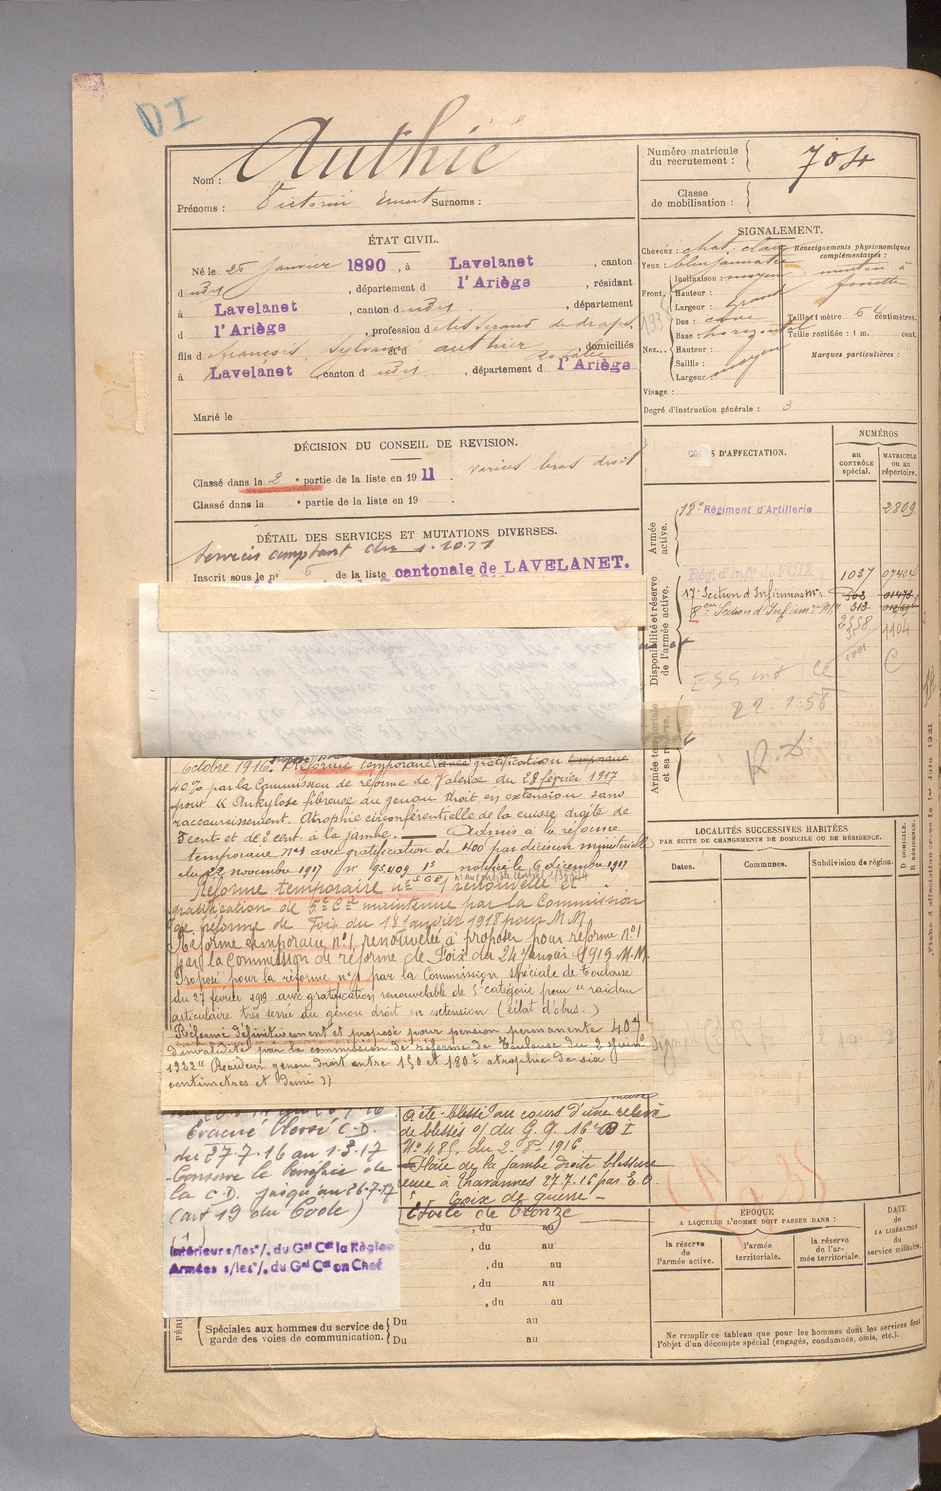 DI
Nom : Authié
Prénoms : Victorin Ernest Surnoms :
Numéro matricule du recrutement : 704
Classe de mobilisation :
ÉTAT CIVIL.
Né le 25 janvier 1890, à Lavelanet, canton
d udit, département d l'Ariège, résidant
à Lavelanet, canton d udit, département
d l'Ariège, profession d de draps
fils d François Sylvain et d authier Rosalie domiciliés
à Lavelanet canton d udit, département d l'Ariège
Marié le
SIGNALEMENT.
Cheveux : chat. clair
Yeux : bleu jaunatre
Front. Inclinaison : moyen
Hauteur :
Largeur : grand
Nez... Dos : cave
Base : horizontal
Hauteur :
Saillie :
Largeur : moyen
Visage :
Renseignements physionomiques complémentaires :
menton à fossette
Taille : 1 mètre 64 centimètres.
Taille rectifiée : 1 m. cent.
Marques particulières :
Degré d'instruction générale : 3
DÉCISION DU CONSEIL DE REVISION.
Classé dans la 2e partie de la liste en 1911. varices bras droit
Classé dans la e partie de la liste en 19 .
DÉTAIL DES SERVICES ET MUTATIONS DIVERSES.
Services comptant du 1.10.11
Inscrit sous le n° 6 de la liste cantonale de LAVELANET.
octobre 1916. Réforme temporaire avec gratification temporaire
40% par la Commission de réforme de Valence du 28 février 1917
pour « Ankylose fibreuse du genou droit en extension sans
raccourcissement. Atrophie circonférentielle de la cuisse droite de
5 cent et de 2 cent. à la jambe. — Admis à la réforme
temporaire n°1 avec gratification de 400 f par décision ministérielle
du 22 novembre 1917 notifiée le 6 décembre 1917
Réforme temporaire n° 1 renouvelée et
gratification de 5e Cie maintenue par la Commission
de réforme de Foix du 18 janvier 1918 pour M.M.
Réforme temporaire n°1, renouvelée à proposer pour réforme n°1
par la Commission de réforme de Foix du 24 janvier 1919 M.M.
Proposé pour la réforme n°1 par la Commission spéciale de Toulouse
du 27 février 1919 avec gratification renouvelable de 5e catégorie pour " raideur
articulaire très serrée du genou droit en extension (éclat d'obus.)
Réformé définitivement et proposé pour pension permanente 40%
d'invalidité par la commission de réforme de Toulouse du 2 juin
1922 " Raideur genou droit entre 150 et 180° atrophie de six
centimètres et demi ))
Évacué blessé C.D.
du 27.7.16 au 1.3.17
Conserve le bénéfice de
la C.D. jusqu'au 26.7.17
(art 19 du Code)
(1)
Intérieur s/les °/. du Gal Ct la Région
Armées s/les °/. du Gal Ct en Chef
A été blessé au cours d'une relève
de blessés o/ du G.G. 16e D I
N° 485. du 2-8-1916.
Plaie de la jambe droite blessure
reçue à Chavannes 27.7.16 par E.O
Croix de guerre -
Étoile de Bronze
, du au
, du au
, du au
, du au
, du au
Spéciales aux hommes du service de garde des voies de communication.
Du au
Du au
CORPS D'AFFECTATION.
NUMÉROS
AU CONTRÔLE spécial.
MATRICULE OU AU répertoire.
Armée active.
18e Régiment d'Artillerie 2809
Disponibilité et réserve de l'armée active.
Rég. d'Infie de FOIX 1037
17e Section d'Infirmiers Mres
8e Section d'Infirm. Mres 313
2558 1104
C
Armée territoriale et sa réserve
22.1.58
LOCALITÉS SUCCESSIVES HABITÉES
PAR SUITE DE CHANGEMENTS DE DOMICILE OU DE RÉSIDENCE.
Dates. Communes. Subdivision de région.
D DOMICILE. R RÉSIDENCE.
ÉPOQUE
A LAQUELLE L'HOMME DOIT PASSER DANS :
la réserve de l'armée active.
l'armée territoriale.
la réserve de l'armée territoriale.
DATE de LA LIBÉRATION du service militaire.
Ne remplir ce tableau que pour les hommes dont les services font
l'objet d'un décompte spécial (engagés, condamnés, omis, etc.).